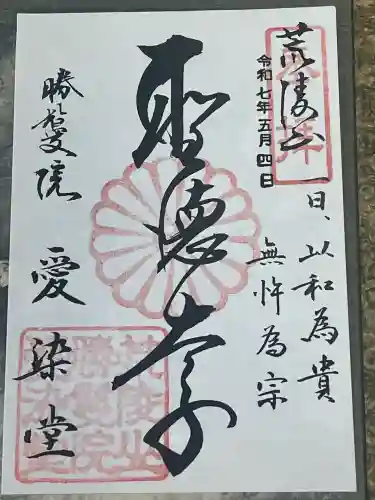 荒陵山
令和七年五月四日
一曰、以和為貴
無忤為宗
聖徳太子
勝鬘院 愛染堂